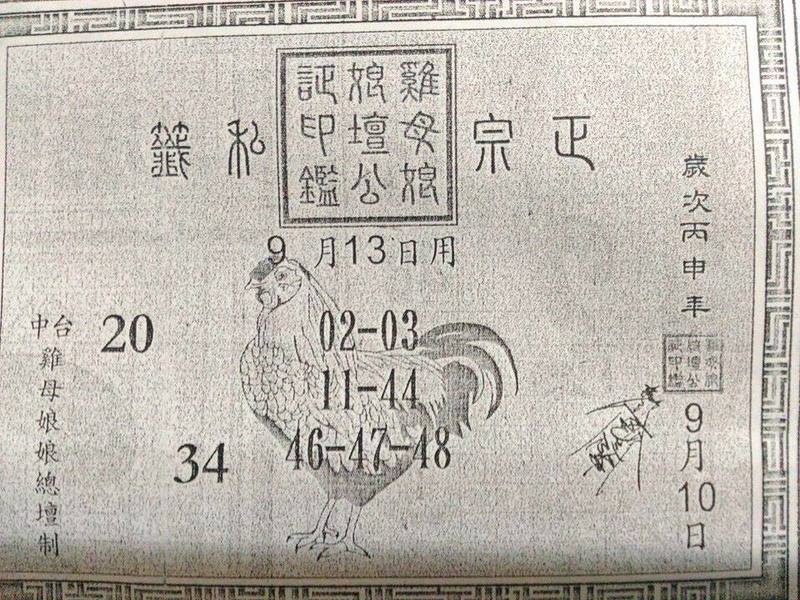 正宗
雞母娘
娘壇公
証印鑑
私籤
歲次丙申年
9月10日
9月13日用
02-03
11-44
46-47-48
20
34
中台雞母娘娘總壇制